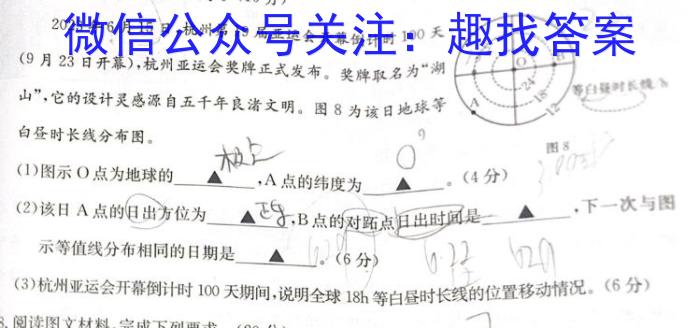 微信公众号关注：趣找答案
100 天
(9 月 23 日开幕),杭州亚运会奖牌正式发布。奖牌取名为“湖
山”,它的设计灵感源自五千年良渚文明。图 8 为该日地球等
白昼时长线分布图。
O
B
A
24
18
12
等白昼时长线/h
图 8
(1)图示 O 点为地球的▲,A 点的纬度为▲。(4 分)
极点
0°
(2)该日 A 点的日出方位为▲,B 点的对跖点日出时间是▲,下一次与图
示等值线分布相同的日期是▲。(6 分)
6.22
(3)杭州亚运会开幕倒计时 100 天期间,说明全球 18h 等白昼时长线的位置移动情况。(6 分)
阅读图文材料,完成下列要求。